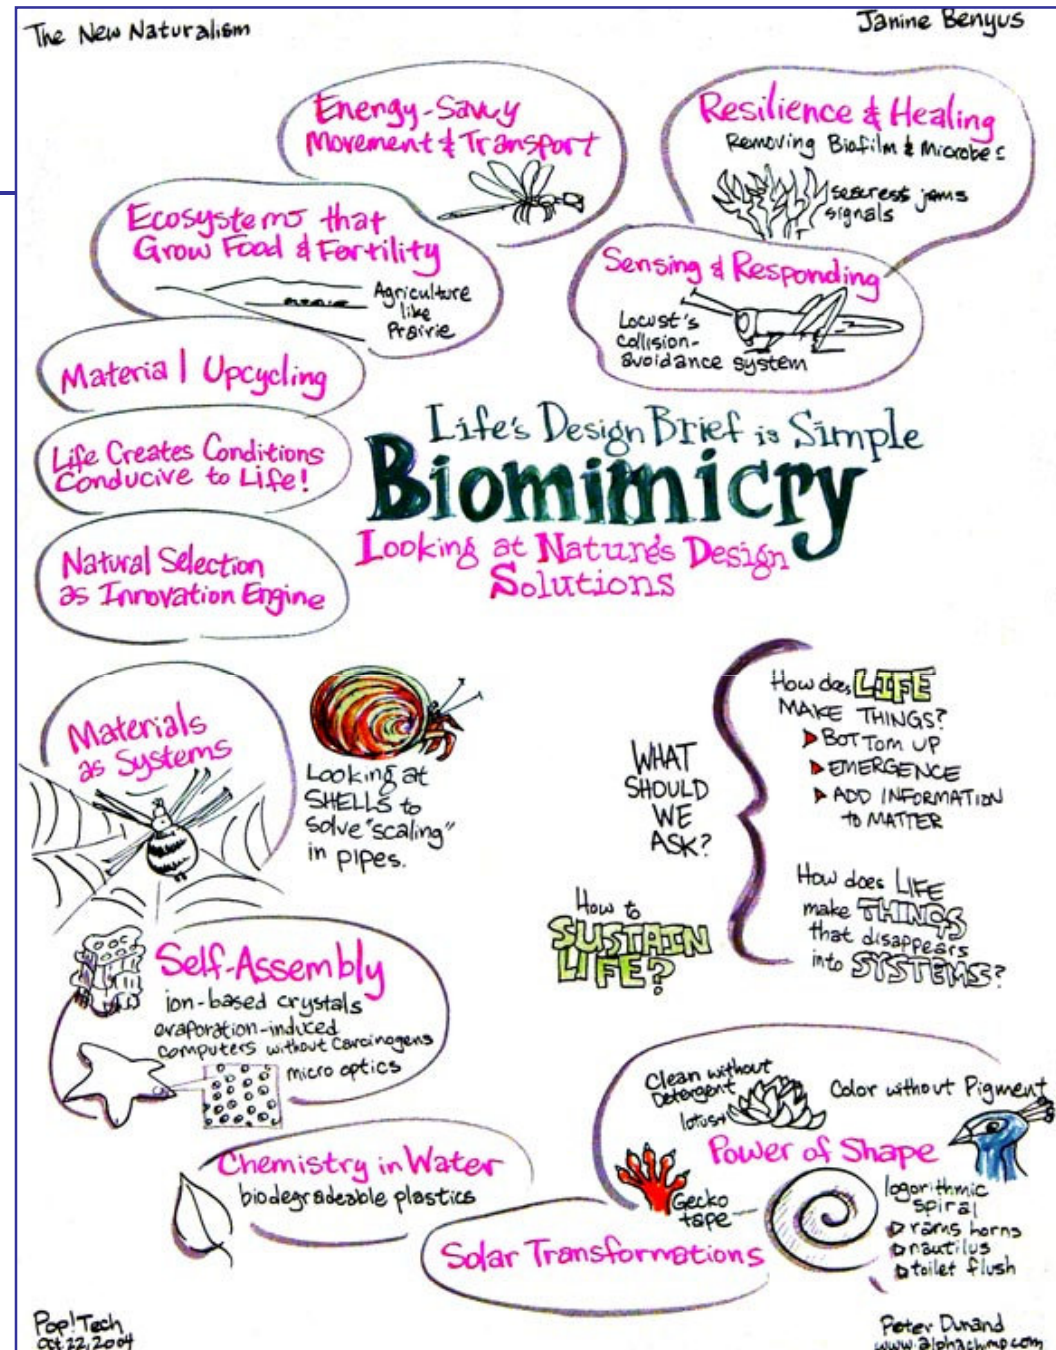 The New Naturalism
Janine Benyus
Energy-Savvy
Movement & Transport
Resilience & Healing
Removing Biofilm & Microbes
seacress jams
signals
Ecosystems that
Grow Food & Fertility
Agriculture
like
Prairie
Sensing & Responding
Locust's
collision-
avoidance system
Material Upcycling
Life Creates Conditions
Conducive to Life!
Natural Selection
as Innovation Engine
Life's Design Brief is Simple
Biomimicry
Looking at Nature's Design
Solutions
Materials
as Systems
Looking at
SHELLS to
solve "scaling"
in pipes.
WHAT
SHOULD
WE
ASK?
How does LIFE
MAKE THINGS?
BOTTOM UP
EMERGENCE
ADD INFORMATION
to MATTER
How does LIFE
make THINGS
that disappears
into SYSTEMS?
How to
SUSTAIN
LIFE?
Self-Assembly
ion-based crystals
evaporation-induced
computers without carcinogens
micro optics
Chemistry in Water
biodegradeable plastics
Solar Transformations
Clean without
Detergent
lotus
Color without Pigment
Power of Shape
Gecko
tape
logorithmic
spiral
rams horns
nautilus
toilet flush
Pop!Tech
Oct.22,2004
Peter Durand
www.alphachimp.com